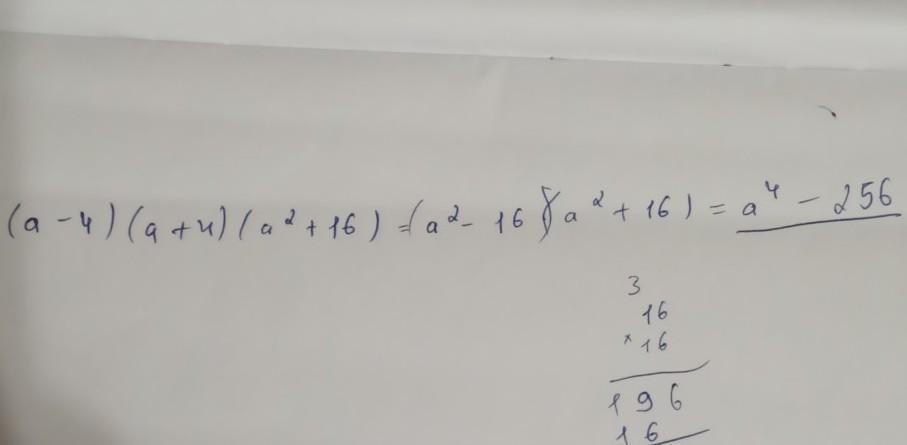 (a - 4)(a + 4)(a² + 16) = (a² - 16)(a² + 16) = a⁴ - 256
3
16
× 16
196
16